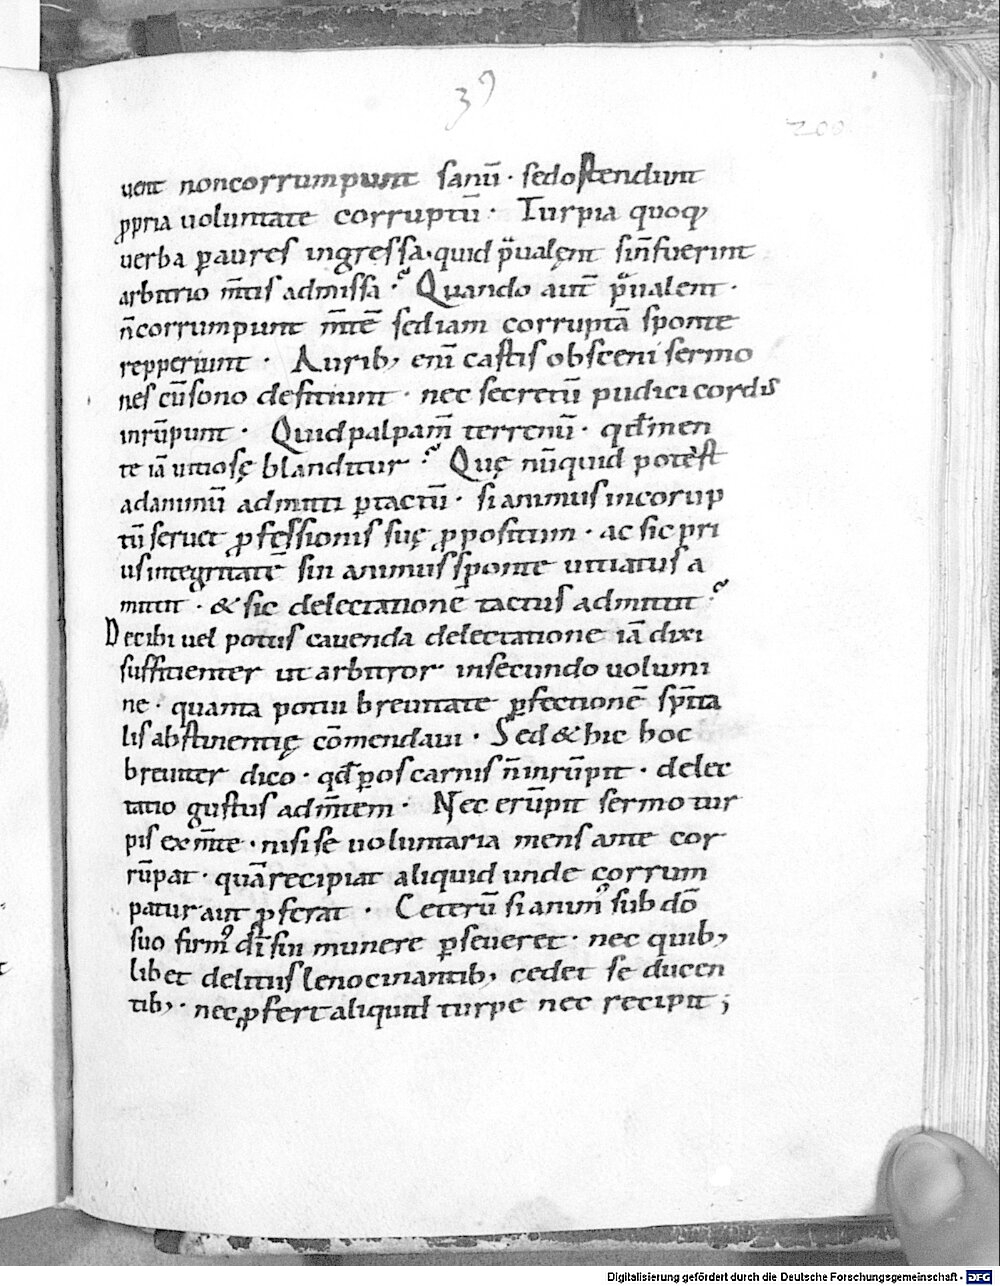 39
200
uent noncorrumpunt sanū · sedostendunt
ꝓpria uoluntate corruptū · Turpia quoq;
uerba ꝑaures ingressa · quid p̄ualęnt sin̄fuerint
arbitrio m̄tis admissa? Quando aut̄ p̄ualent ·
n̄corrumpunt m̄tē sediam corruptā sponte
repperiunt · Aurib; enī castis obsceni sermo
nes cū̄sono desinunt · nec secretū pudici cordis
inrūpunt · Quidpalpam̄ terrenū · qd̄men
te iā uitiosę blanditur? Quę nūquid potest
adanimū admitti ꝑtactū · si animusincorup
tū seruet ꝓfessionis suę ꝓpositum · ac sic pri
usintegritatē sin animussponte uitiatus a
mittit · & sic delectationē tactus admittit?
Decibi uel potus cauenda delectatione iā dixi
sufficienter ut arbitror insecundo uolumi
ne · quanta potui breuitate ꝑfectionē sp̄ita
lis abstinentię cōmendaui · Sed & hic hoc
breuiter dico · qd̄ ꝑos carnis n̄inrūpit · delec
tatio gustus adm̄tem · Nec erūpit sermo tur
pis exm̄te · nisi se uoluntaria mens ante cor
rūpat · quā recipiat aliquid unde corrum
patur aut ꝓferat · Ceterū si anim᾽ sub dō
suo firm᾽ di᾽sui munere ꝑseueret · nec quib;
libet delitiis lenocinantib; cedet se ducen
tib; · nec ꝓfert aliquid turpe nec recipit ;
Digitalisierung gefördert durch die Deutsche Forschungsgemeinschaft - DFG